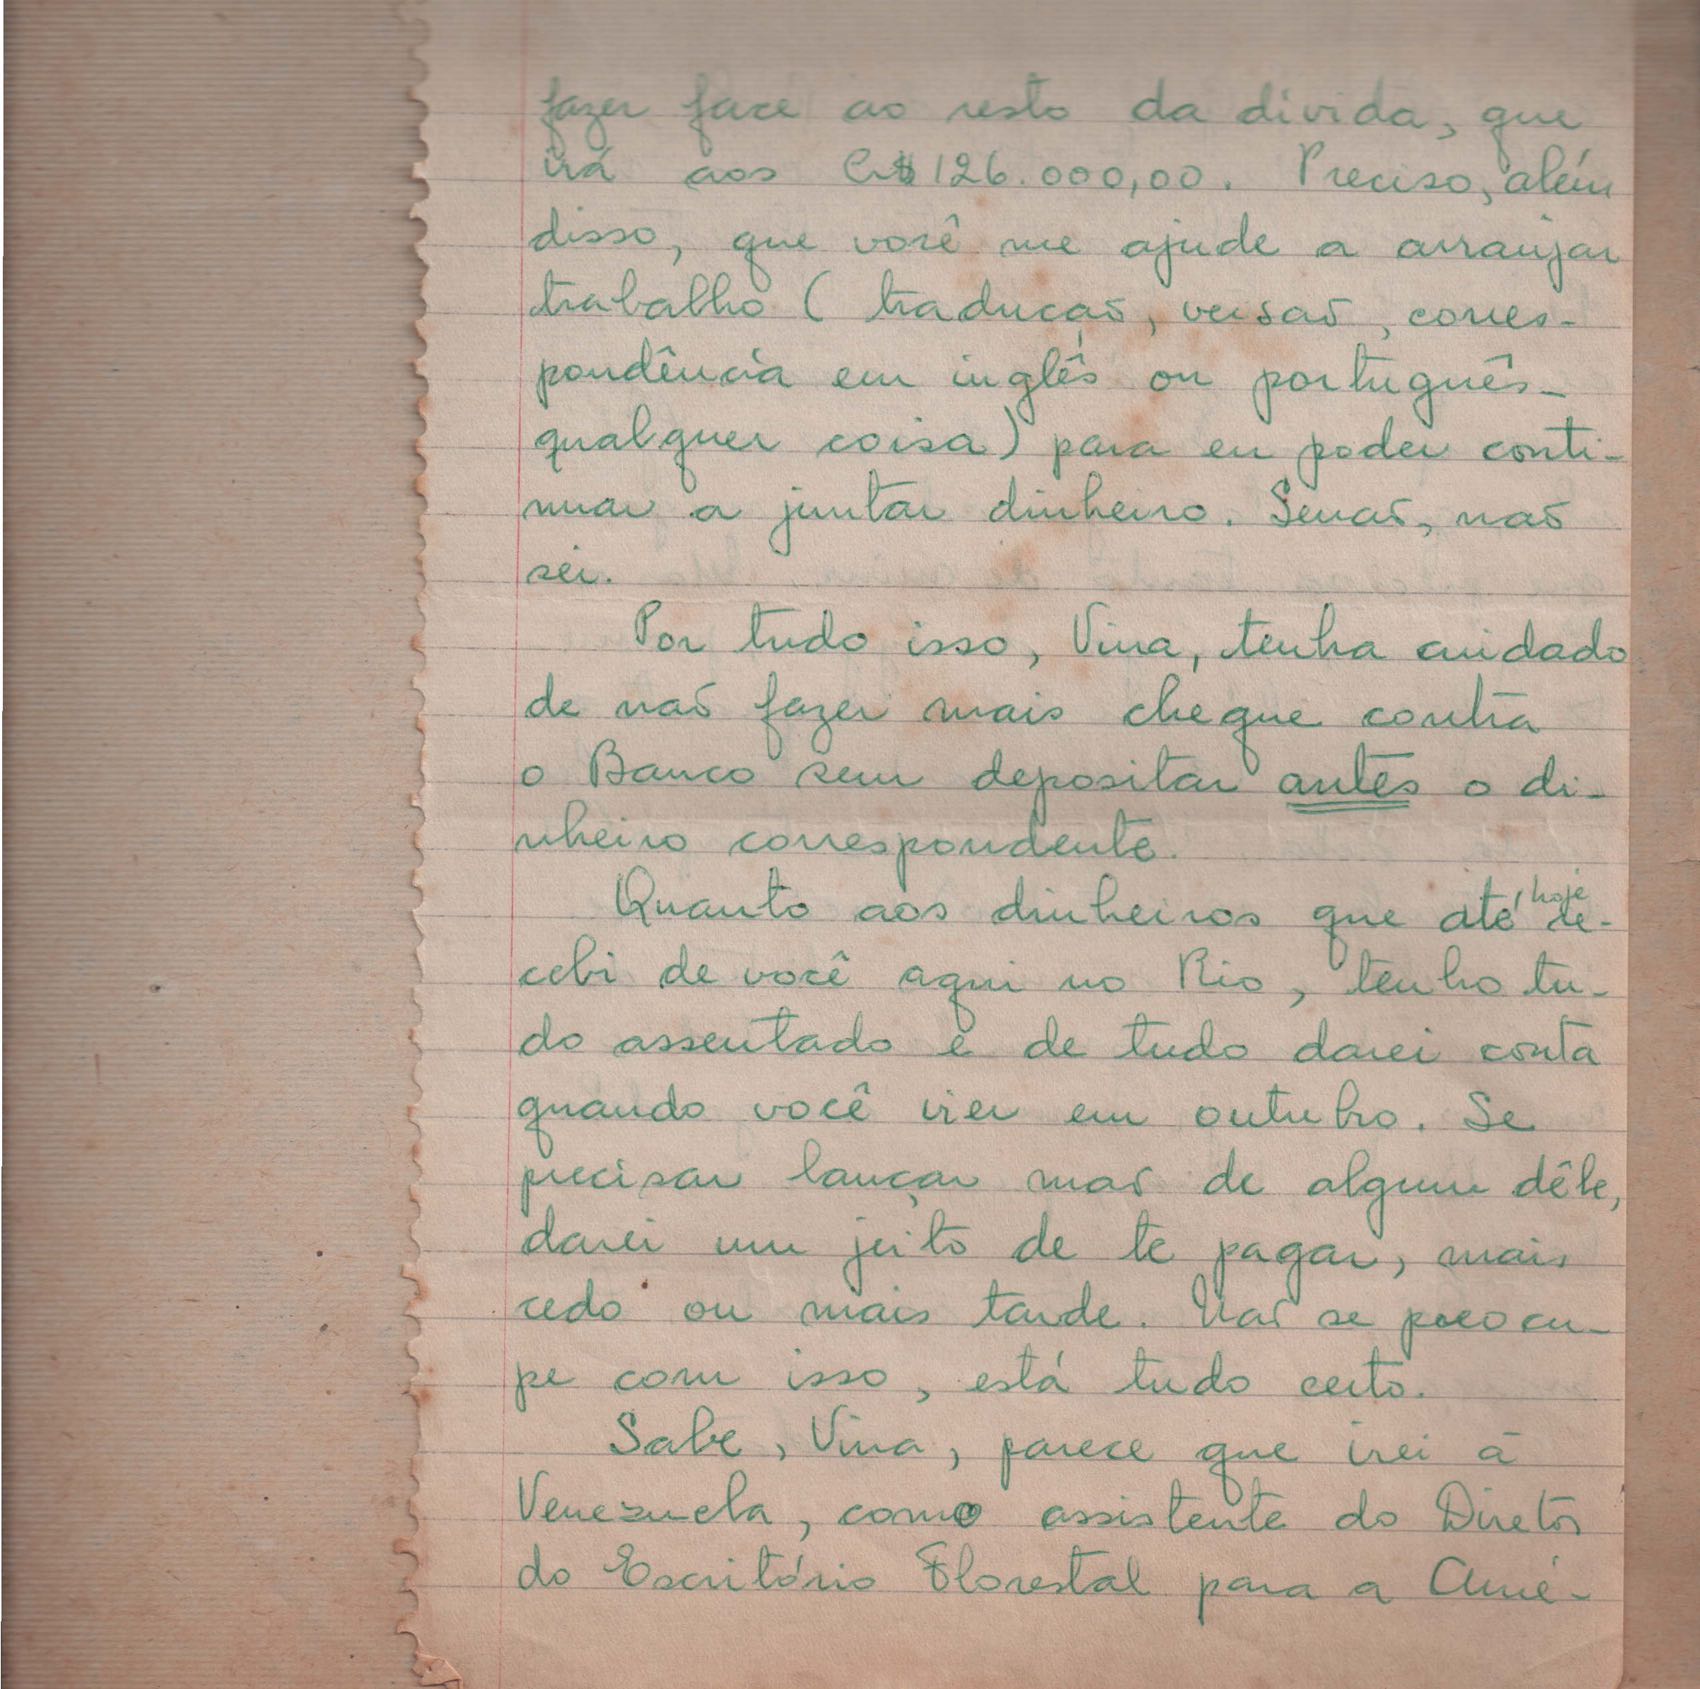 fazer face ao resto da divida, que
irá aos Cr$ 126.000,00. Preciso, além
disso, que você me ajude a arranjar
trabalho (traducção, versão, corres-
pondência em inglês ou português-
qualquer coisa) para eu poder conti-
nuar a juntar dinheiro. Senão, não
sei.
Por tudo isso, Vina, tenha cuidado
de não fazer mais cheque contra
o Banco sem depositar antes o di-
nheiro correspondente.
Quanto aos dinheiros que até hoje re-
cebi de você aqui no Rio, tenho tu-
do assentado e de tudo darei conta
quando você vier em outubro. Se
precisar lançar mão de algum dêle,
darei um jeito de te pagar, mais
cedo ou mais tarde. Não se preocu-
pe com isso, está tudo certo.
Sabe, Vina, parece que irei à
Venezuela, como assistente do Diretor
do Escritório Florestal para a Amé-